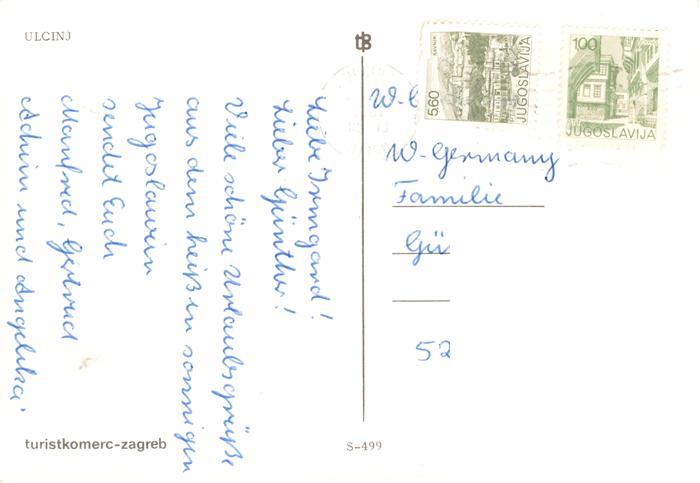 ULCINJ
Liebe Irmgard!
Lieber Günther!
Viele schöne Urlaubsgrüße
aus dem heißen sonnigen
Jugoslawien
sendet Euch
Manfred, Gertrud
Achim und Angelika.
turistkomerc-zagreb
S-499
5.60
JUGOSLAVIJA
1.00
JUGOSLAVIJA
W-Germany
Familie
Gü
52